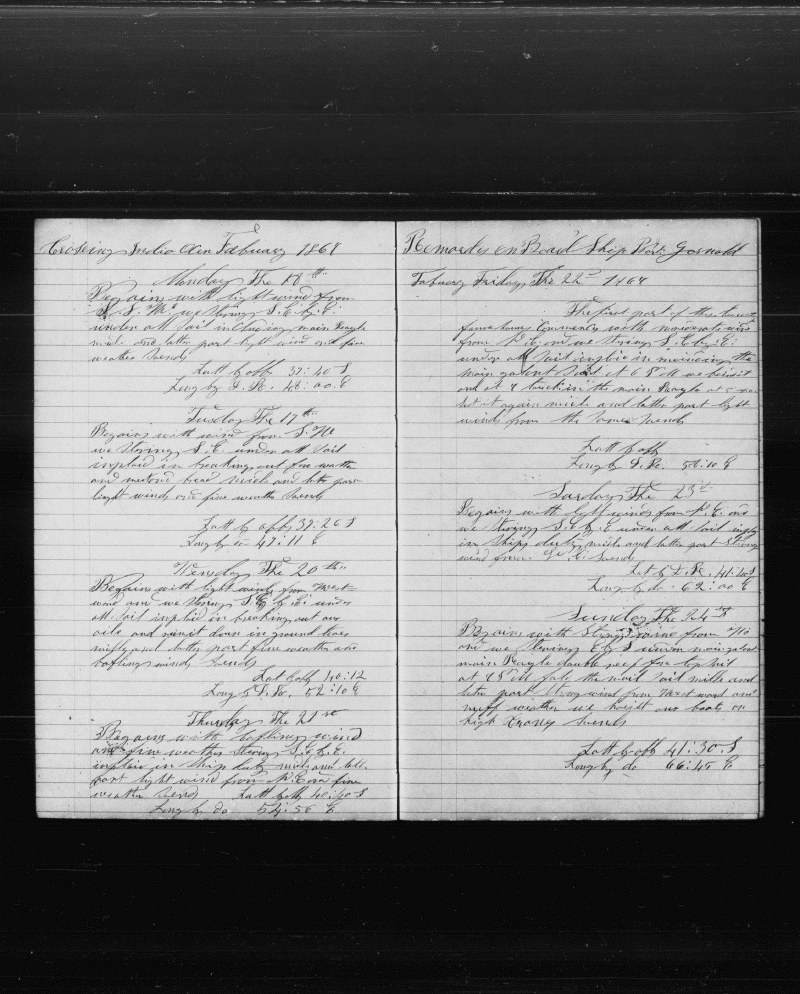 Crossing India Ocn Febuary 1868
Monday The 18th
Begains with light wind from
S. S. W. we stering S. E. by E.
under all sail inclucing main Royle
midle and latter part light wind and fine
weather Soends
Latt by obs 39:40 S
Long by D. R. 46:00 E
Tusday The 19th
Begains with wind from S. W
we stering S. E. under all sail
inploid in breaking out for watter
and bread midle and latter part
light winds and fine weather Soends
Latt by obbs 39:26 S
Long by do 47:11 E
Wensday The 20th
Begains with light winds from West
ward and we stering S. E. by E. under
all sail inploid in breaking out our
oile and runit down in ground teer
midle and latter part fine weather and
bafling winds Soends
Lat by obb 40:12
Long by D. R. 52:10 E
Thursday The 21st
Begains with bafling wind
and fine weather stering S. E. by E.
inploid in ships duty midle and latter
part light wind from N. E. and fine
weather Soends Latt by obb 40:40 S
Long by do 54:56 E
Remarks on Board Ship Bart. Gosnold
Febuary Friday The 22nd 1868
The first part of these twenty
four hours Commences with moderate wind
from N. E. and we stering S. E by E.
under all sail inploid in the
main galent Sail at 6 P M we
and at 7 the main Royle
set it again midle and latter part light
winds from the same Soends
Latt by obb
Long by D. R. 56:10 E
Sarday The 23rd
Begains with light winds from N. E. and
we stering S. E by E under all sail inploid
in ships duty midle and latter part strong
wind from Soends
Lat by D. R. 41:40 S
Long by do. 62:00 E
Sunday The 24th
Begains with Strong wind from
and we stering E by S under main galent
main Royle double reef fore topsail
at sail midle and
latter part strong wind from West ward and
ruff weather we hoist our boats on
high Cranes Soends
Latt by obb 41:30 S
Long by do 66:45 E